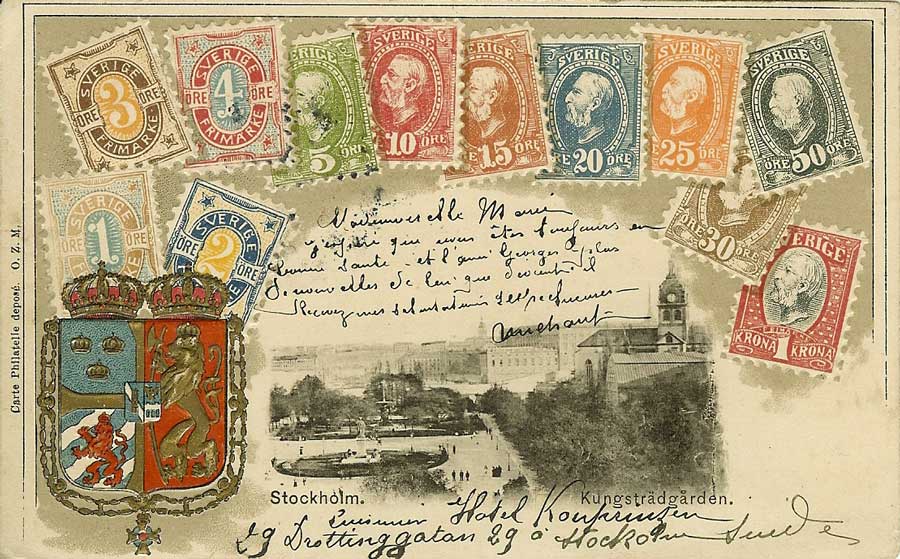 SVERIGE
3
ÖRE ÖRE
FRIMÄRKE
SVERIGE
4
ÖRE ÖRE
FRIMÄRKE
SVERIGE
5 ÖRE
SVERIGE
10 ÖRE
SVERIGE
15 ÖRE
SVERIGE
20 ÖRE
SVERIGE
25 ÖRE
SVERIGE
ÖRE 50 ÖRE
SVERIGE
1
ÖRE ÖRE
SVERIGE
2
ÖRE ÖRE
30 ÖRE
SVERIGE
KRONA 1 KRONA
Carte Philatelie deposé. O. Z. M.
Mademoiselle Marie
j'espère que vous êtes toujours en
bonne santé et l'ami Georges plus
de nouvelles de lui que devient il
Recevez mes salutations
Stockholm.
Kungsträdgården.
Hotel
29 Drottninggatan 29 à Stockholm Suède